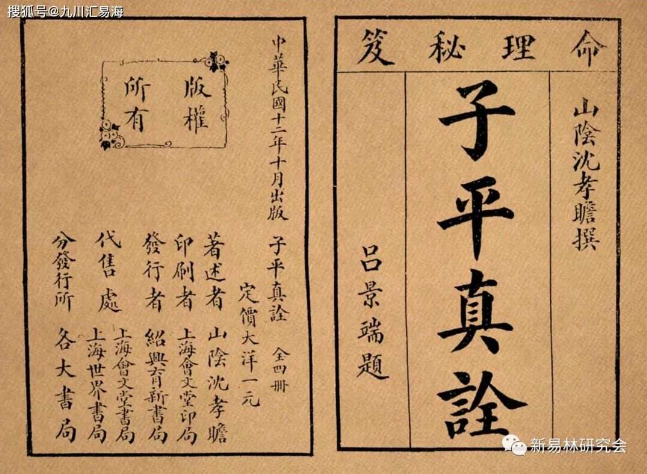 搜狐号@九川汇易海
命理秘笈
山陰沈孝瞻撰
子平真詮
吕景端題
版權
所有
中華民國十二年十月出版
子平真詮 全四冊
定價大洋一元
著述者 山陰沈孝瞻
印刷者 上海會文堂印局
發行者 紹興育新書局
代售處 上海會文堂書局
上海世界書局
分發行所 各大書局
新易林研究会